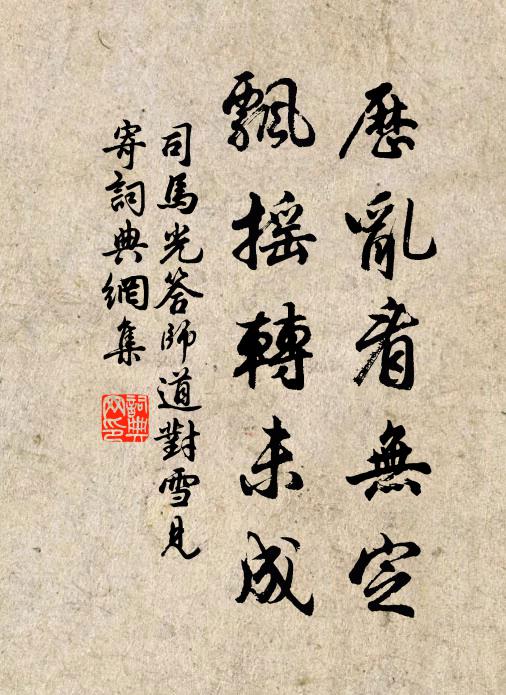 歷亂看無定
飄搖轉未成
司馬光答師道對雪見
寄詞典網集
詞典網印